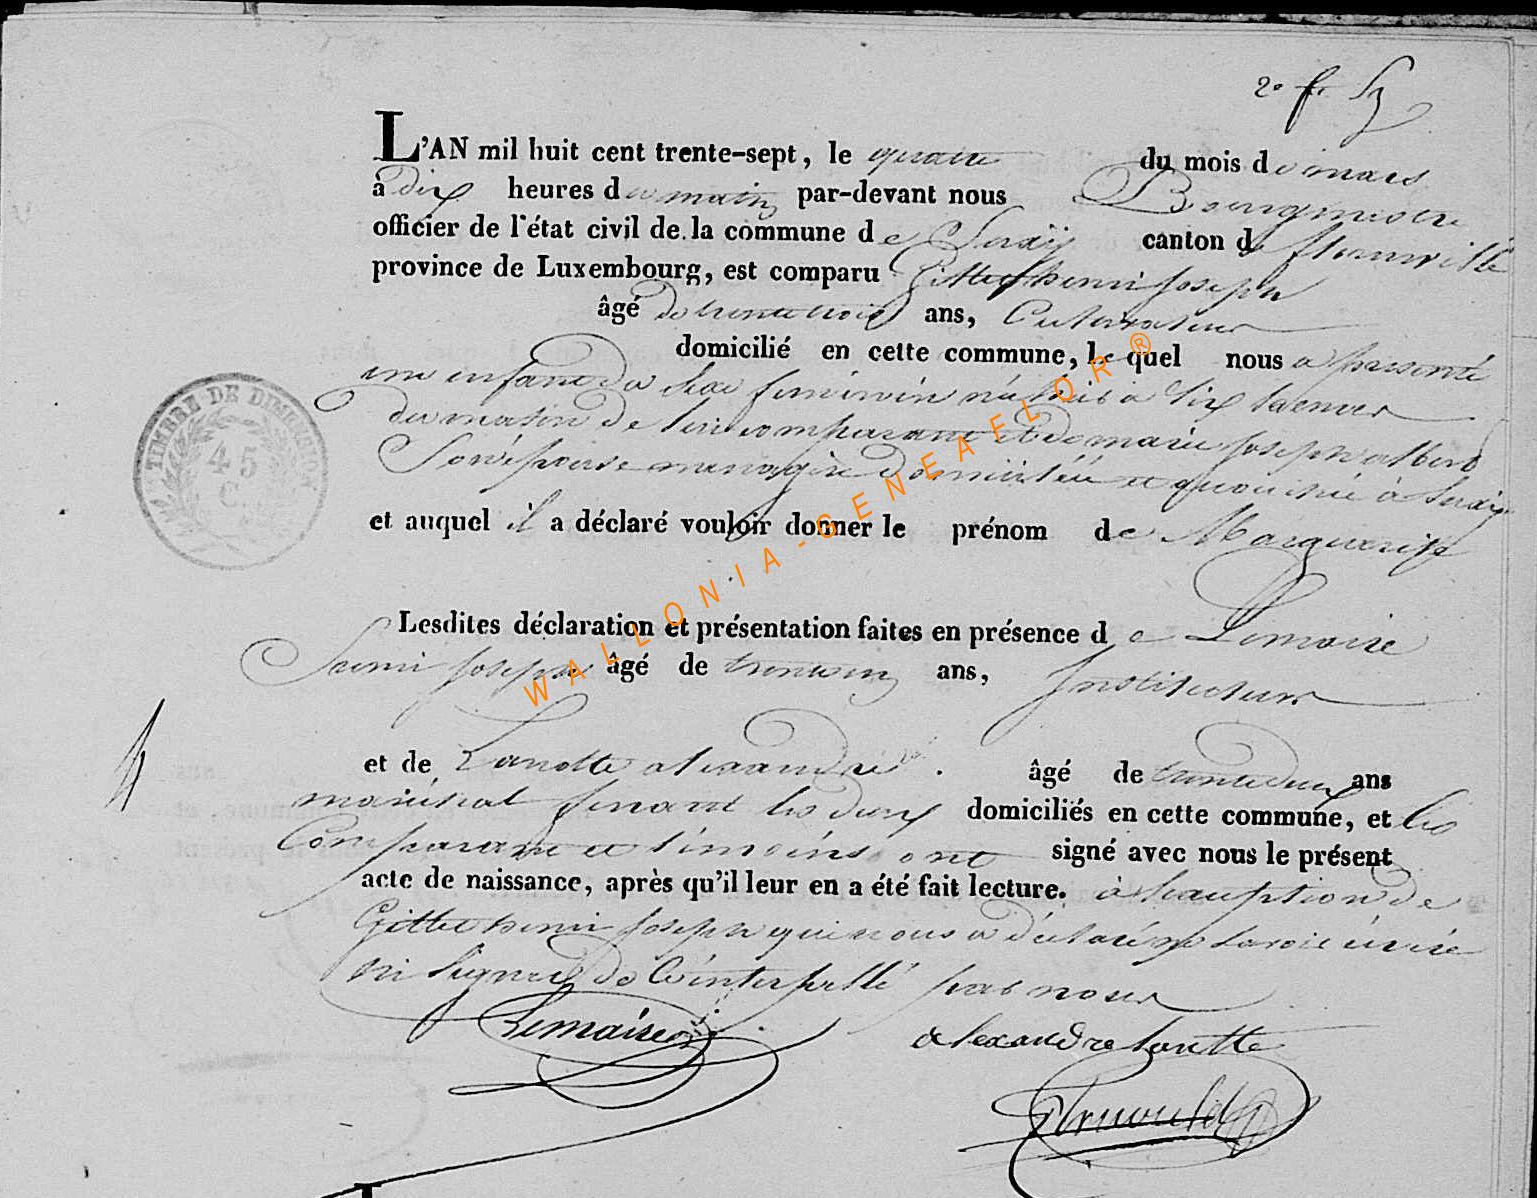 2e f. Sz
L'AN mil huit cent trente-sept, le quatre du mois de mars
à dix heures du matin par-devant nous Bourgmestre
officier de l'état civil de la commune de canton de
province de Luxembourg, est comparu Gitte henri Joseph
âgé de trente trois ans, Cultivateur
domicilié en cette commune, lequel nous a présenté
un enfant du Sexe feminin né à Six heures
du matin de lui comparant et de marie Joseph albert
Son épouse menagère domiciliée a
et auquel il a déclaré vouloir donner le prénom de Marguerite
Lesdites déclaration et présentation faites en présence de Lemaire
henri Joseph âgé de ans, Instituteur
et de Lanotte alexandre âgé de trente deux ans
maréchal ferrant les deux domiciliés en cette commune, et les
Comparant et témoins ont signé avec nous le présent
acte de naissance, après qu'il leur en a été fait lecture. à l'exception de
Gitte henri Joseph qui nous a déclaré ne Savoir écrire
ni Signer de ce interpellé par nous
Lemaire
alexandre Lanotte
TIMBRE DE DIMENSION
45
C.
WALLONIA-GENEAFLOR®